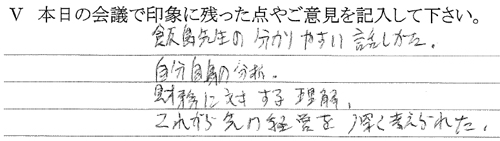 V 本日の会議で印象に残った点やご意見を記入して下さい。
飯島先生の分かりやすい話しかた。
自分自身の分析。
財務に対する理解、
これから先の経営を深く考えられた。